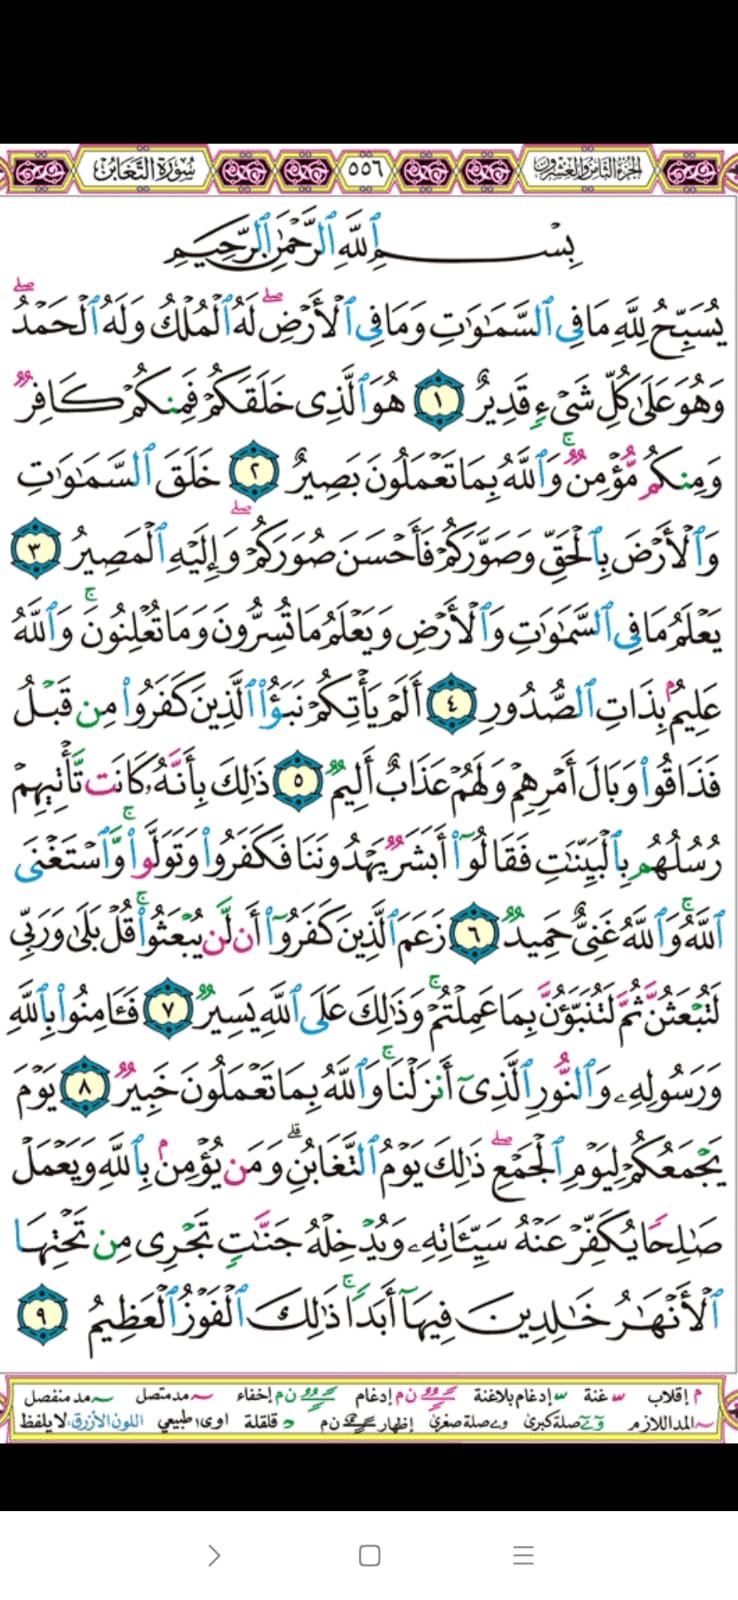 الجزء الثامن والعشرون ٥٥٦ سورة التغابن
بِسْمِ ٱللَّهِ ٱلرَّحْمَٰنِ ٱلرَّحِيمِ
يُسَبِّحُ لِلَّهِ مَا فِى ٱلسَّمَٰوَٰتِ وَمَا فِى ٱلْأَرْضِ ۖ لَهُ ٱلْمُلْكُ وَلَهُ ٱلْحَمْدُ ۖ
وَهُوَ عَلَىٰ كُلِّ شَىْءٍ قَدِيرٌ ١ هُوَ ٱلَّذِى خَلَقَكُمْ فَمِنكُمْ كَافِرٌ
وَمِنكُم مُّؤْمِنٌ ۚ وَٱللَّهُ بِمَا تَعْمَلُونَ بَصِيرٌ ٢ خَلَقَ ٱلسَّمَٰوَٰتِ
وَٱلْأَرْضَ بِٱلْحَقِّ وَصَوَّرَكُمْ فَأَحْسَنَ صُوَرَكُمْ ۖ وَإِلَيْهِ ٱلْمَصِيرُ ٣
يَعْلَمُ مَا فِى ٱلسَّمَٰوَٰتِ وَٱلْأَرْضِ وَيَعْلَمُ مَا تُسِرُّونَ وَمَا تُعْلِنُونَ ۚ وَٱللَّهُ
عَلِيمٌۢ بِذَاتِ ٱلصُّدُورِ ٤ أَلَمْ يَأْتِكُمْ نَبَؤُا۟ ٱلَّذِينَ كَفَرُوا۟ مِن قَبْلُ
فَذَاقُوا۟ وَبَالَ أَمْرِهِمْ وَلَهُمْ عَذَابٌ أَلِيمٌ ٥ ذَٰلِكَ بِأَنَّهُۥ كَانَت تَّأْتِيهِمْ
رُسُلُهُم بِٱلْبَيِّنَٰتِ فَقَالُوٓا۟ أَبَشَرٌ يَهْدُونَنَا فَكَفَرُوا۟ وَتَوَلَّوا۟ ۚ وَّٱسْتَغْنَى
ٱللَّهُ ۚ وَٱللَّهُ غَنِىٌّ حَمِيدٌ ٦ زَعَمَ ٱلَّذِينَ كَفَرُوٓا۟ أَن لَّن يُبْعَثُوا۟ ۚ قُلْ بَلَىٰ وَرَبِّى
لَتُبْعَثُنَّ ثُمَّ لَتُنَبَّؤُنَّ بِمَا عَمِلْتُمْ ۚ وَذَٰلِكَ عَلَى ٱللَّهِ يَسِيرٌ ٧ فَـَٔامِنُوا۟ بِٱللَّهِ
وَرَسُولِهِۦ وَٱلنُّورِ ٱلَّذِىٓ أَنزَلْنَا ۚ وَٱللَّهُ بِمَا تَعْمَلُونَ خَبِيرٌ ٨ يَوْمَ
يَجْمَعُكُمْ لِيَوْمِ ٱلْجَمْعِ ۖ ذَٰلِكَ يَوْمُ ٱلتَّغَابُنِ ۗ وَمَن يُؤْمِنۢ بِٱللَّهِ وَيَعْمَلْ
صَٰلِحًا يُكَفِّرْ عَنْهُ سَيِّـَٔاتِهِۦ وَيُدْخِلْهُ جَنَّٰتٍ تَجْرِى مِن تَحْتِهَا
ٱلْأَنْهَٰرُ خَٰلِدِينَ فِيهَآ أَبَدًا ۚ ذَٰلِكَ ٱلْفَوْزُ ٱلْعَظِيمُ ٩
م إقلاب غنة إدغام بلاغنة ن م إدغام ن م إخفاء مد متصل مد منفصل
المد اللازم صلة كبرى صلة صغرى إظهار ن م قلقلة اوى طبيعي اللون الأزرق لا يلفظ